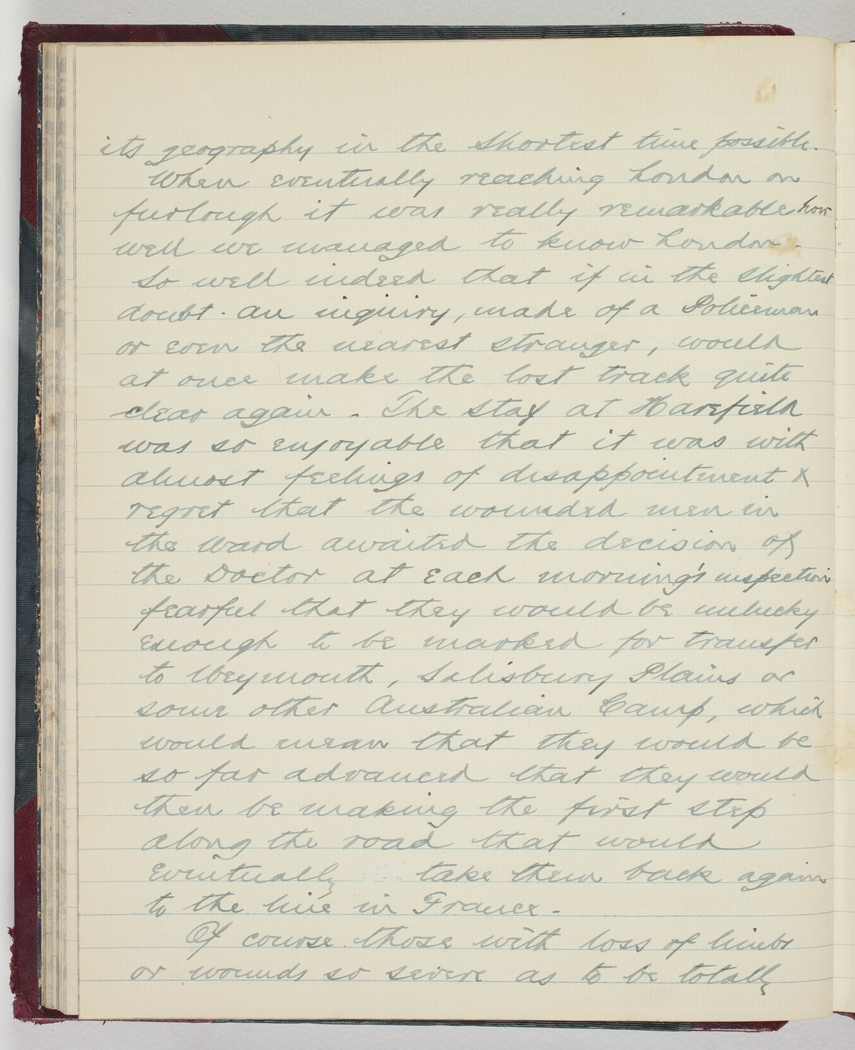 its geography in the shortest time possible.
When eventually reaching London on
furlough it was really remarkable how
well we managed to know London.
So well indeed that if in the slightest
doubt. an inquiry, made of a Policeman
or even the nearest stranger, would
at once make the lost track quite
clear again. The stay at Harefield
was so enjoyable that it was with
almost feelings of disappointment &
regret that the wounded men in
the Ward awaited the decision of
the Doctor at each morning's inspection
fearful that they would be unlucky
enough to be marked for transfer
to Weymouth, Salisbury Plains or
some other Australian Camp, which
would mean that they would be
so far advanced that they would
then be making the first step
along the road that would
eventually take them back again
to the line in France.
Of course those with loss of limbs
or wounds so severe as to be totally